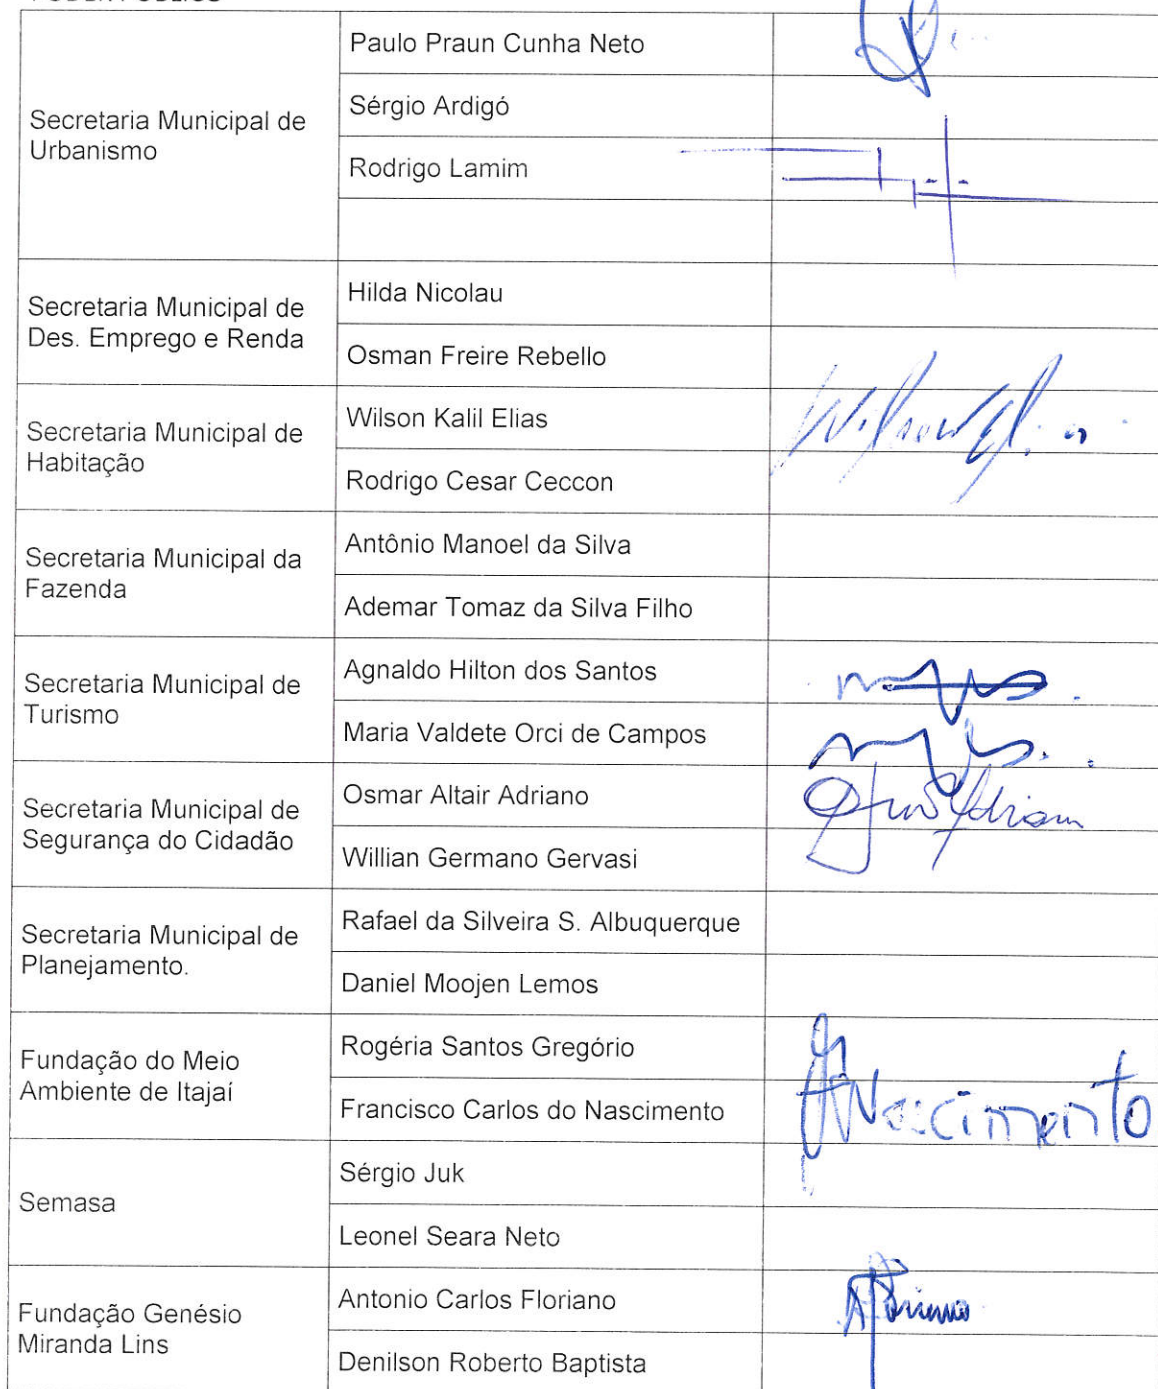 Secretaria Municipal de
Urbanismo
Paulo Praun Cunha Neto
Sérgio Ardigó
Rodrigo Lamim
Secretaria Municipal de
Des. Emprego e Renda
Hilda Nicolau
Osman Freire Rebello
Secretaria Municipal de
Habitação
Wilson Kalil Elias
Wilson Elias
Rodrigo Cesar Ceccon
Secretaria Municipal da
Fazenda
Antônio Manoel da Silva
Ademar Tomaz da Silva Filho
Secretaria Municipal de
Turismo
Agnaldo Hilton dos Santos
Maria Valdete Orci de Campos
Secretaria Municipal de
Segurança do Cidadão
Osmar Altair Adriano
Adriano
Willian Germano Gervasi
Secretaria Municipal de
Planejamento.
Rafael da Silveira S. Albuquerque
Daniel Moojen Lemos
Fundação do Meio
Ambiente de Itajaí
Rogéria Santos Gregório
Francisco Carlos do Nascimento
Nascimento
Semasa
Sérgio Juk
Leonel Seara Neto
Fundação Genésio
Miranda Lins
Antonio Carlos Floriano
Denilson Roberto Baptista